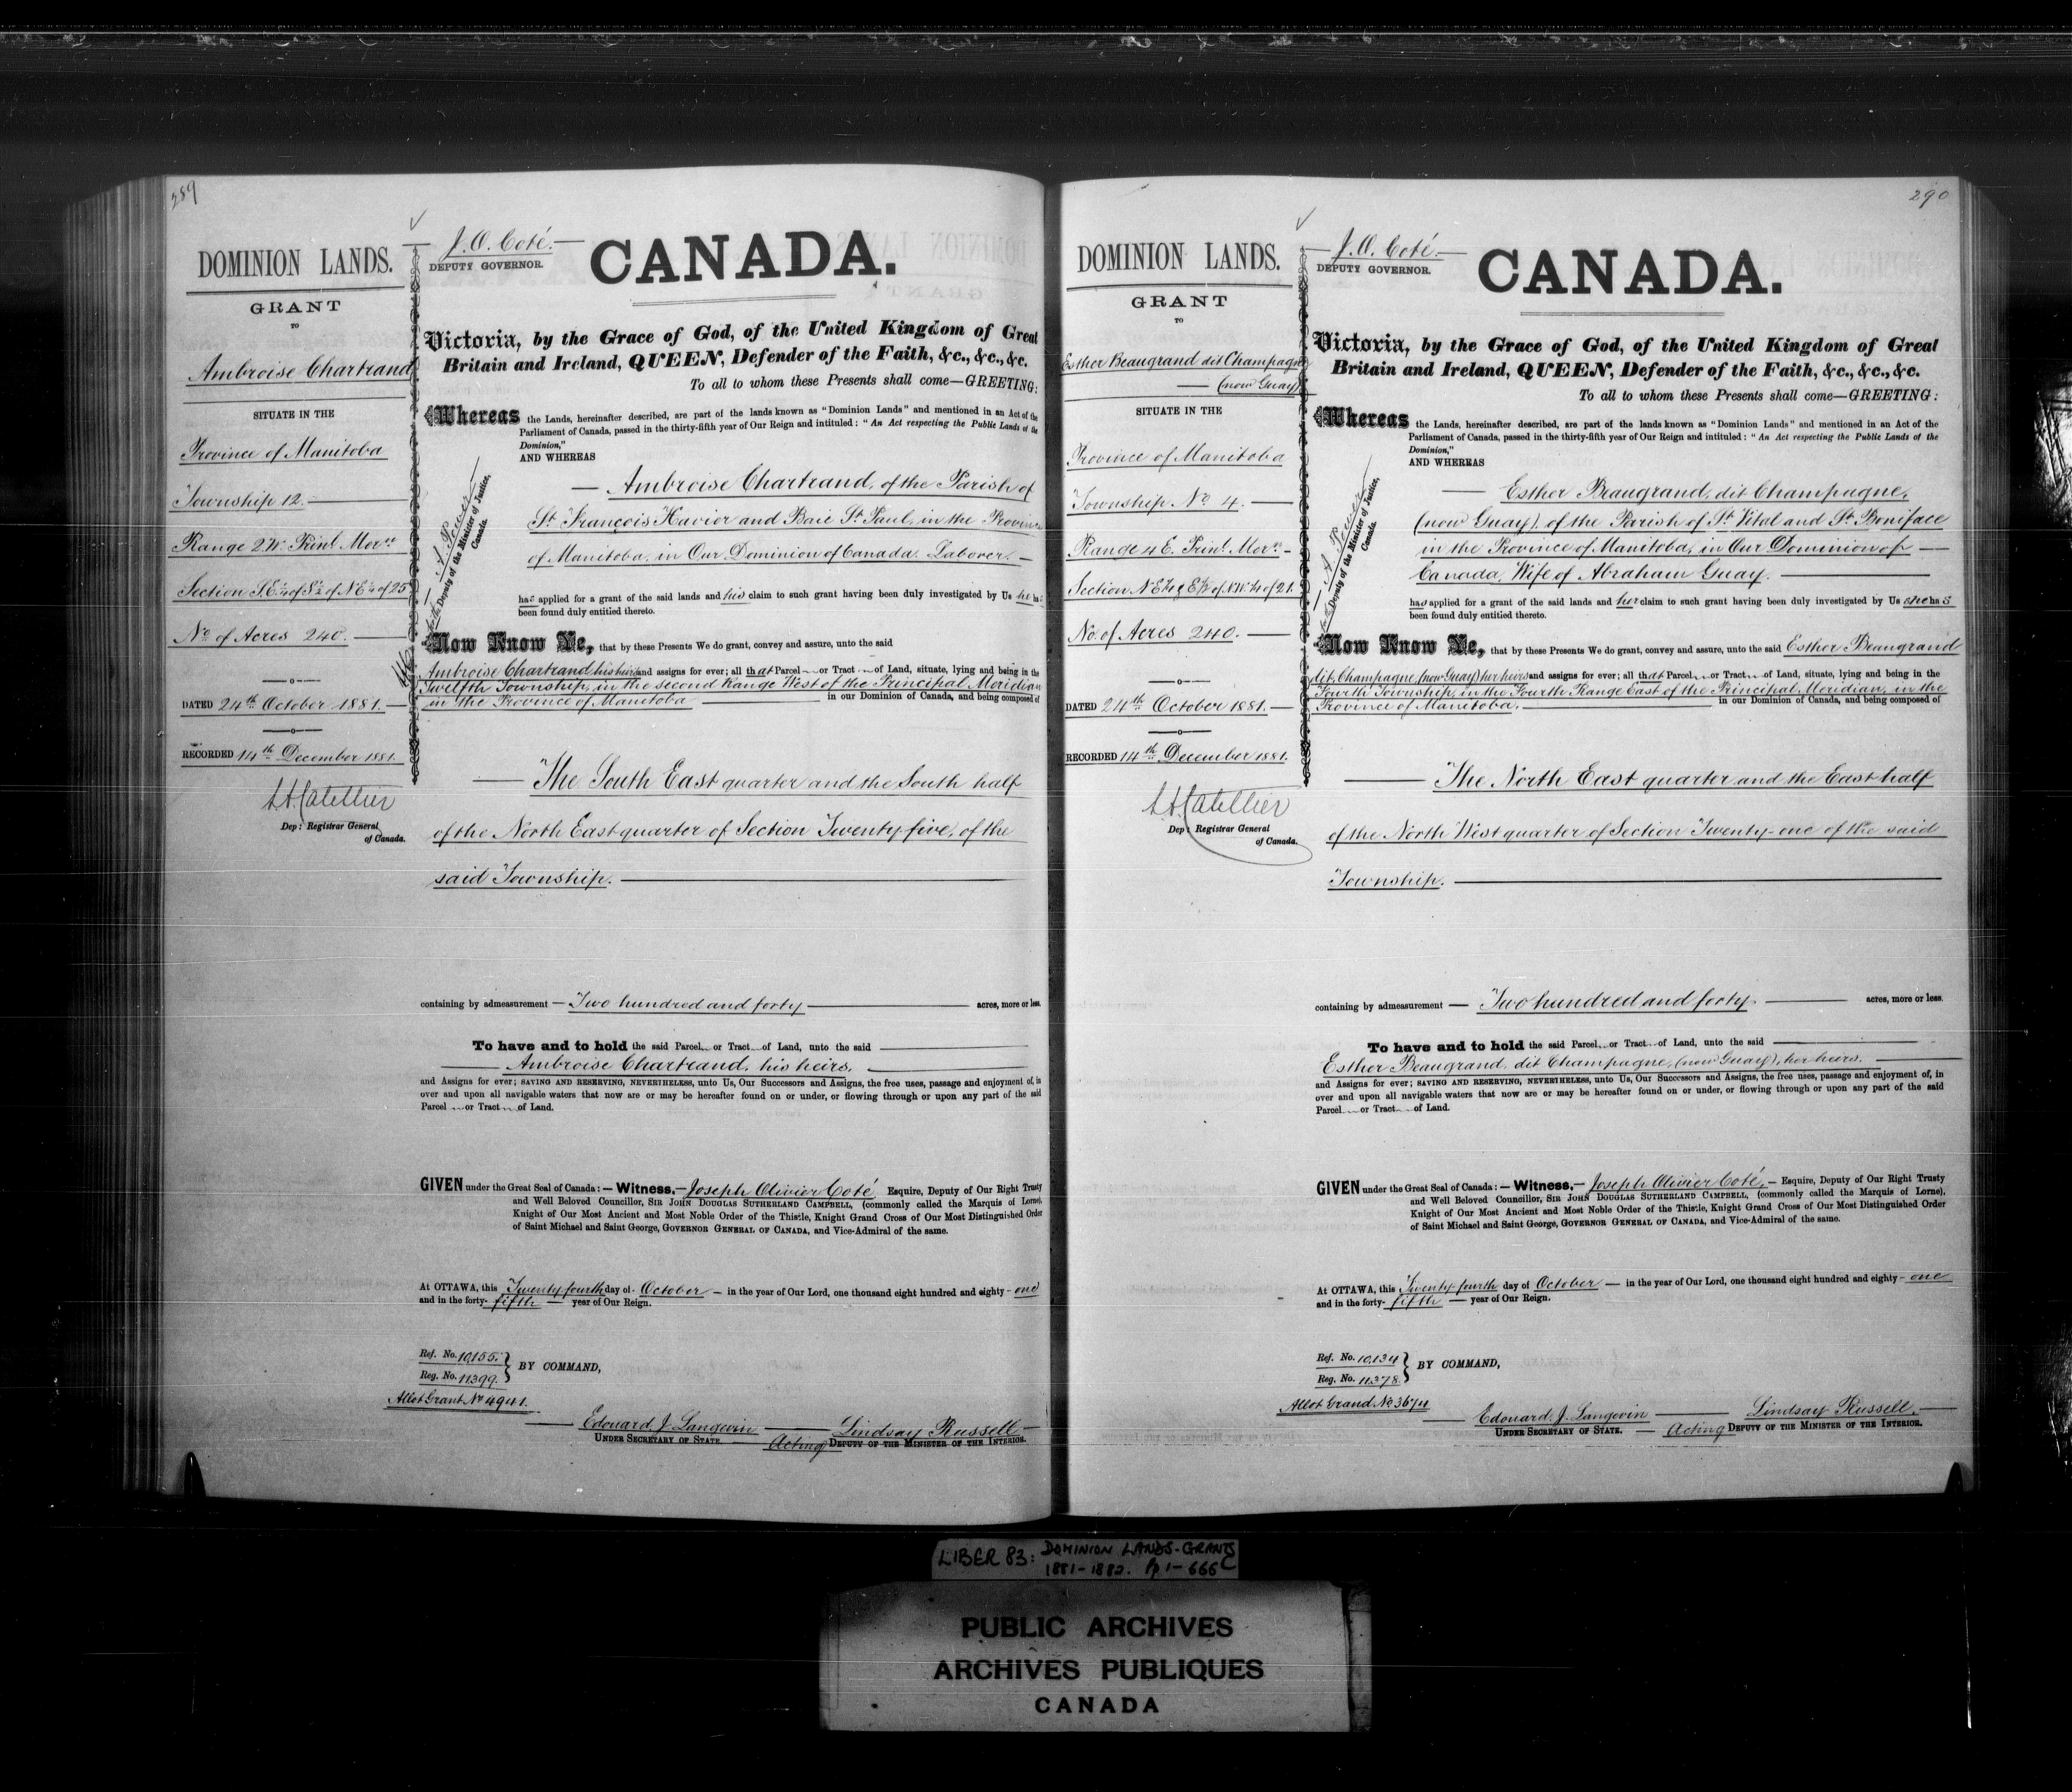 289
DOMINION LANDS.
GRANT
TO
Ambroise Chartrand
SITUATE IN THE
Province of Manitoba
Township 12.
Range 2 W. Prinl. Mern
Section S.E¼ of S½ of N.E¼ of 25
No. of Acres 240.
DATED 24th October 1881.
RECORDED 14th December 1881.
L A Catellier
Dep: Registrar General
of Canada.
J. O. Coté.
DEPUTY GOVERNOR.
CANADA.
Victoria, by the Grace of God, of the United Kingdom of Great
Britain and Ireland, QUEEN, Defender of the Faith, &c., &c., &c.
To all to whom these Presents shall come—GREETING:
Whereas the Lands, hereinafter described, are part of the lands known as "Dominion Lands" and mentioned in an Act of the
Parliament of Canada, passed in the thirty-fifth year of Our Reign and intituled: "An Act respecting the Public Lands of the
Dominion,"
AND WHEREAS
A Power
Deputy of the Minister of Justice,
Canada.
Ambroise Chartrand, of the Parish of
St. François Xavier and Baie St. Paul, in the Province
of Manitoba, in Our Dominion of Canada. Laborer.
has applied for a grant of the said lands and his claim to such grant having been duly investigated by Us he has
been found duly entitled thereto.
Now Know Ye, that by these Presents We do grant, convey and assure, unto the said
Ambroise Chartrand his heirs and assigns for ever; all that Parcel or Tract of Land, situate, lying and being in the
Twelfth Township, in the second Range West of the Principal Meridian
in the Province of Manitoba in our Dominion of Canada, and being composed of
The South East quarter and the South half
of the North East quarter of Section Twenty five, of the
said Township.
containing by admeasurement — Two hundred and forty acres, more or less.
To have and to hold the said Parcel or Tract of Land, unto the said
Ambroise Chartrand, his heirs,
and Assigns for ever; SAVING AND RESERVING, NEVERTHELESS, unto Us, Our Successors and Assigns, the free uses, passage and enjoyment of, in
over and upon all navigable waters that now are or may be hereafter found on or under, or flowing through or upon any part of the said
Parcel or Tract of Land.
GIVEN under the Great Seal of Canada:—Witness,—Joseph Olivier Coté Esquire, Deputy of Our Right Trusty
and Well Beloved Councillor, SIR JOHN DOUGLAS SUTHERLAND CAMPBELL, (commonly called the Marquis of Lorne),
Knight of Our Most Ancient and Most Noble Order of the Thistle, Knight Grand Cross of Our Most Distinguished Order
of Saint Michael and Saint George, GOVERNOR GENERAL OF CANADA, and Vice-Admiral of the same.
At OTTAWA, this Twenty fourth day of October — in the year of Our Lord, one thousand eight hundred and eighty-one
and in the forty-fifth — year of Our Reign.
Ref. No. 10,155.
Reg. No. 11399.
BY COMMAND,
Allot Grant No 4941.
Edouard J. Langevin — Lindsay Russell
UNDER SECRETARY OF STATE. — Acting DEPUTY OF THE MINISTER OF THE INTERIOR.
290
DOMINION LANDS.
GRANT
TO
Esther Beaugrand dit Champagne
(now Guay)
SITUATE IN THE
Province of Manitoba
Township No. 4.
Range 4 E. Prinl. Mern
Section N.E¼ & E½ of N.W.¼ of 21.
No. of Acres 240.
DATED 24th October 1881.
RECORDED 14th December 1881.
L A Catellier
Dep: Registrar General
of Canada.
J. O. Coté.
DEPUTY GOVERNOR.
CANADA.
Victoria, by the Grace of God, of the United Kingdom of Great
Britain and Ireland, QUEEN, Defender of the Faith, &c., &c., &c.
To all to whom these Presents shall come—GREETING:
Whereas the Lands, hereinafter described, are part of the lands known as "Dominion Lands" and mentioned in an Act of the
Parliament of Canada, passed in the thirty-fifth year of Our Reign and intituled: "An Act respecting the Public Lands of the
Dominion,"
AND WHEREAS
A Power
Deputy of the Minister of Justice,
Canada.
Esther Beaugrand, dit Champagne,
(now Guay), of the Parish of St. Vital and St. Boniface
in the Province of Manitoba, in Our Dominion of
Canada, Wife of Abraham Guay.
has applied for a grant of the said lands and her claim to such grant having been duly investigated by Us she has
been found duly entitled thereto.
Now Know Ye, that by these Presents We do grant, convey and assure, unto the said Esther Beaugrand
dit Champagne, (now Guay) her heirs and assigns for ever; all that Parcel or Tract of Land, situate, lying and being in the
Fourth Township, in the Fourth Range East of the Principal Meridian, in the
Province of Manitoba. in our Dominion of Canada, and being composed of
The North East quarter and the East half
of the North West quarter of Section Twenty-one of the said
Township.
containing by admeasurement — Two hundred and forty. acres, more or less.
To have and to hold the said Parcel or Tract of Land, unto the said
Esther Beaugrand dit Champagne, (now Guay), her heirs.
and Assigns for ever; SAVING AND RESERVING, NEVERTHELESS, unto Us, Our Successors and Assigns, the free uses, passage and enjoyment of, in
over and upon all navigable waters that now are or may be hereafter found on or under, or flowing through or upon any part of the said
Parcel or Tract of Land.
GIVEN under the Great Seal of Canada:—Witness,—Joseph Olivier Coté,— Esquire, Deputy of Our Right Trusty
and Well Beloved Councillor, SIR JOHN DOUGLAS SUTHERLAND CAMPBELL, (commonly called the Marquis of Lorne),
Knight of Our Most Ancient and Most Noble Order of the Thistle, Knight Grand Cross of Our Most Distinguished Order
of Saint Michael and Saint George, GOVERNOR GENERAL OF CANADA, and Vice-Admiral of the same.
At OTTAWA, this Twenty fourth day of October — in the year of Our Lord, one thousand eight hundred and eighty-one
and in the forty-fifth — year of Our Reign.
Ref. No. 10,134
Reg. No. 11,378.
BY COMMAND,
Allot Grand No. 3674
Edouard J. Langevin — Lindsay Russell.
UNDER SECRETARY OF STATE. — Acting DEPUTY OF THE MINISTER OF THE INTERIOR.
LIBER 83: DOMINION LANDS-GRANTS
1881-1882. Pp 1-666
PUBLIC ARCHIVES
ARCHIVES PUBLIQUES
CANADA